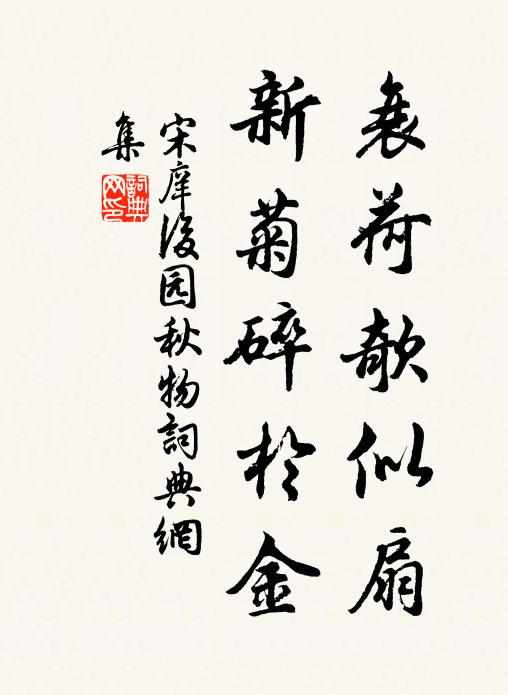 衰荷欹似扇
新菊碎於金
宋庠後园秋物詞典網
集
詞典网印